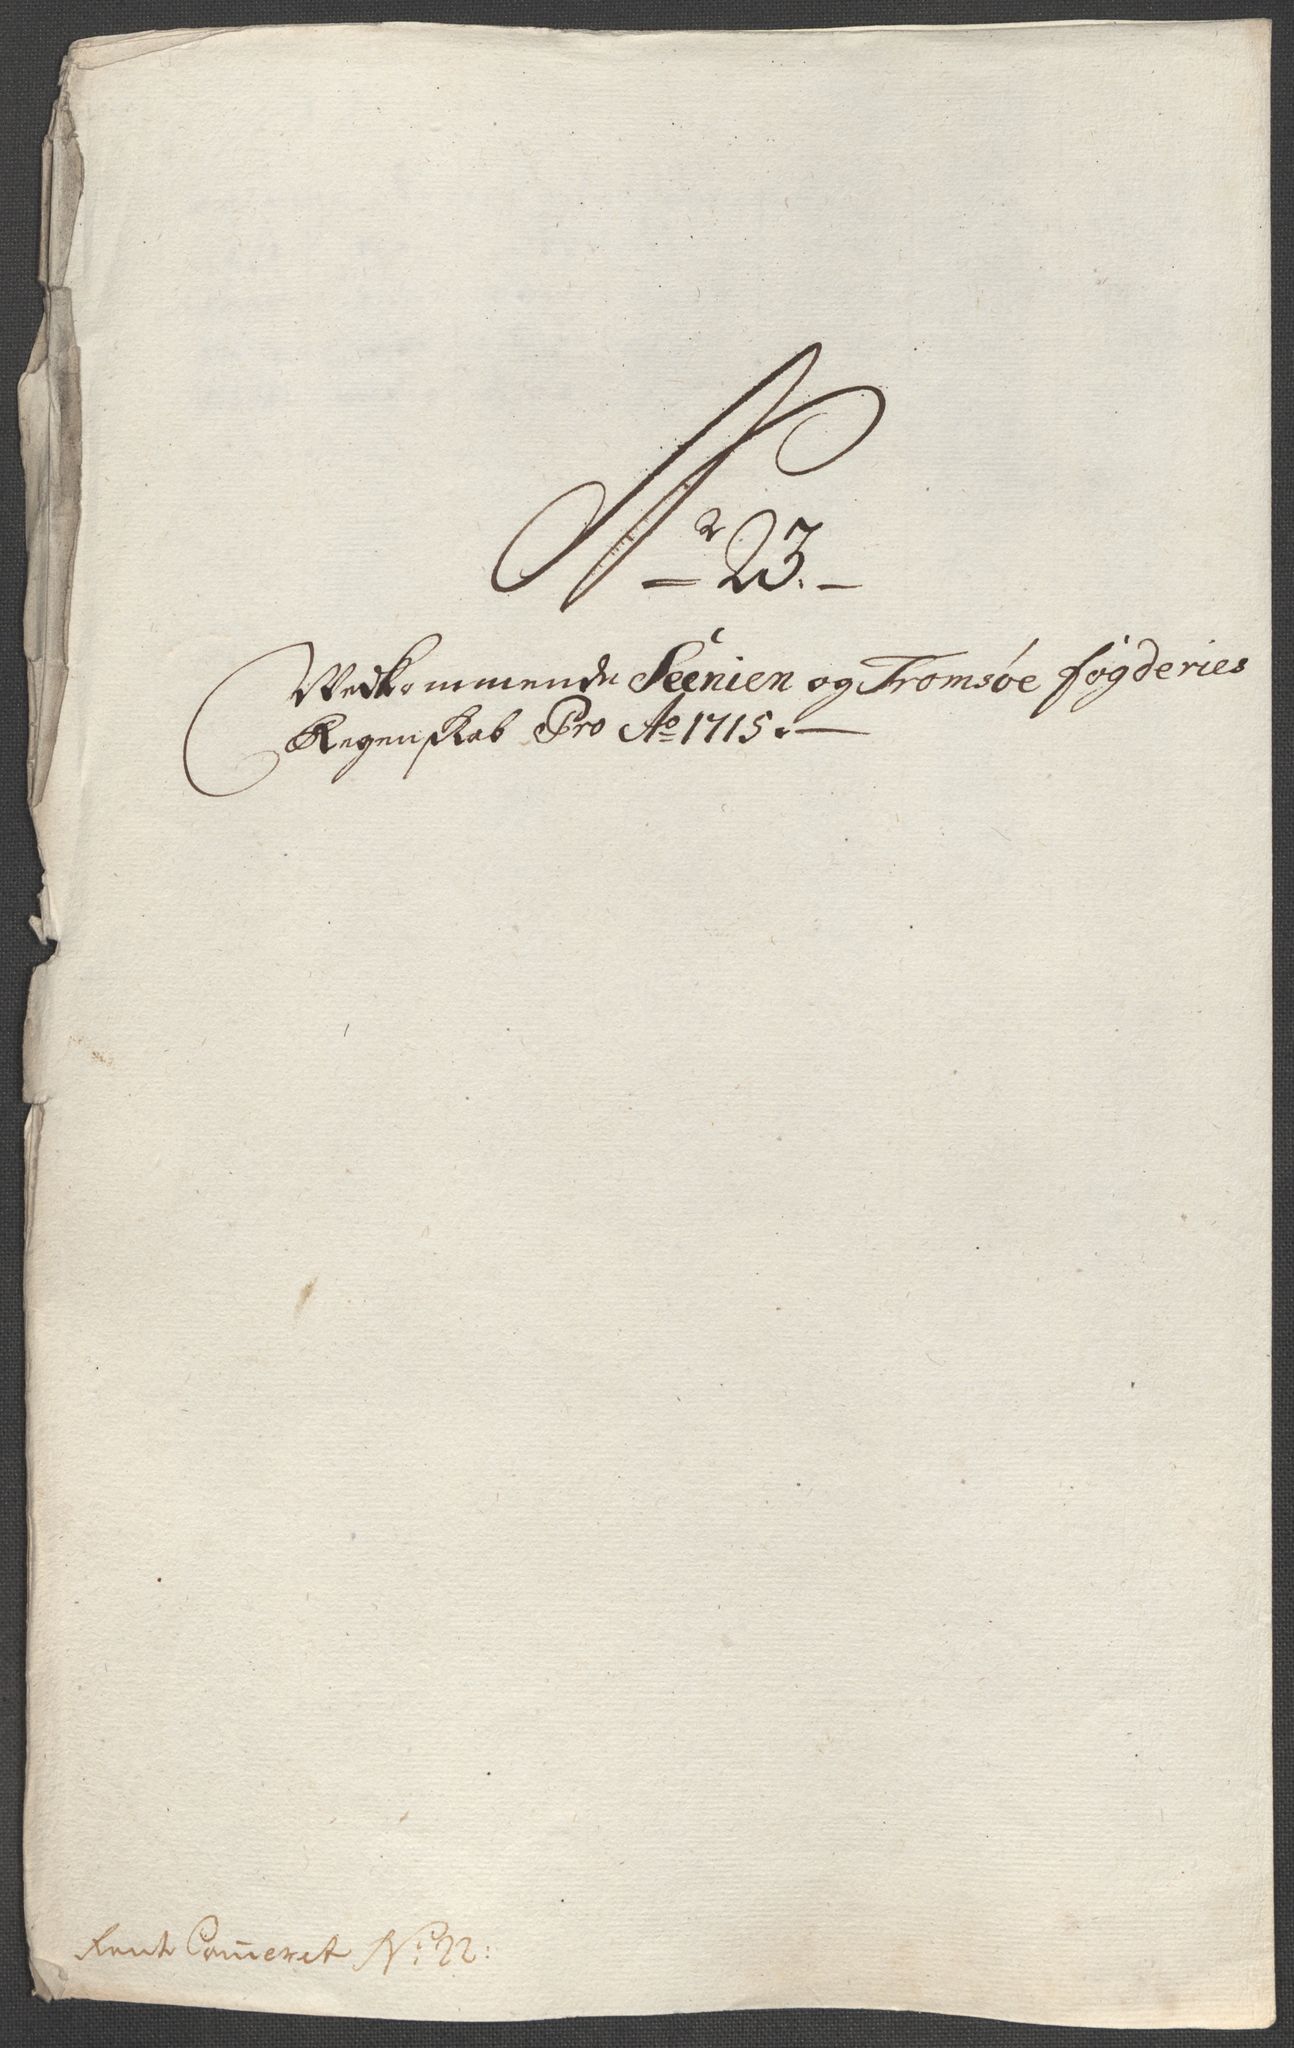 Nr 23.
Vedkommende Seenien og Tromsøe fogderies
Regenskab Pro Ao 1715.
Rente Cam̅eret No 22: